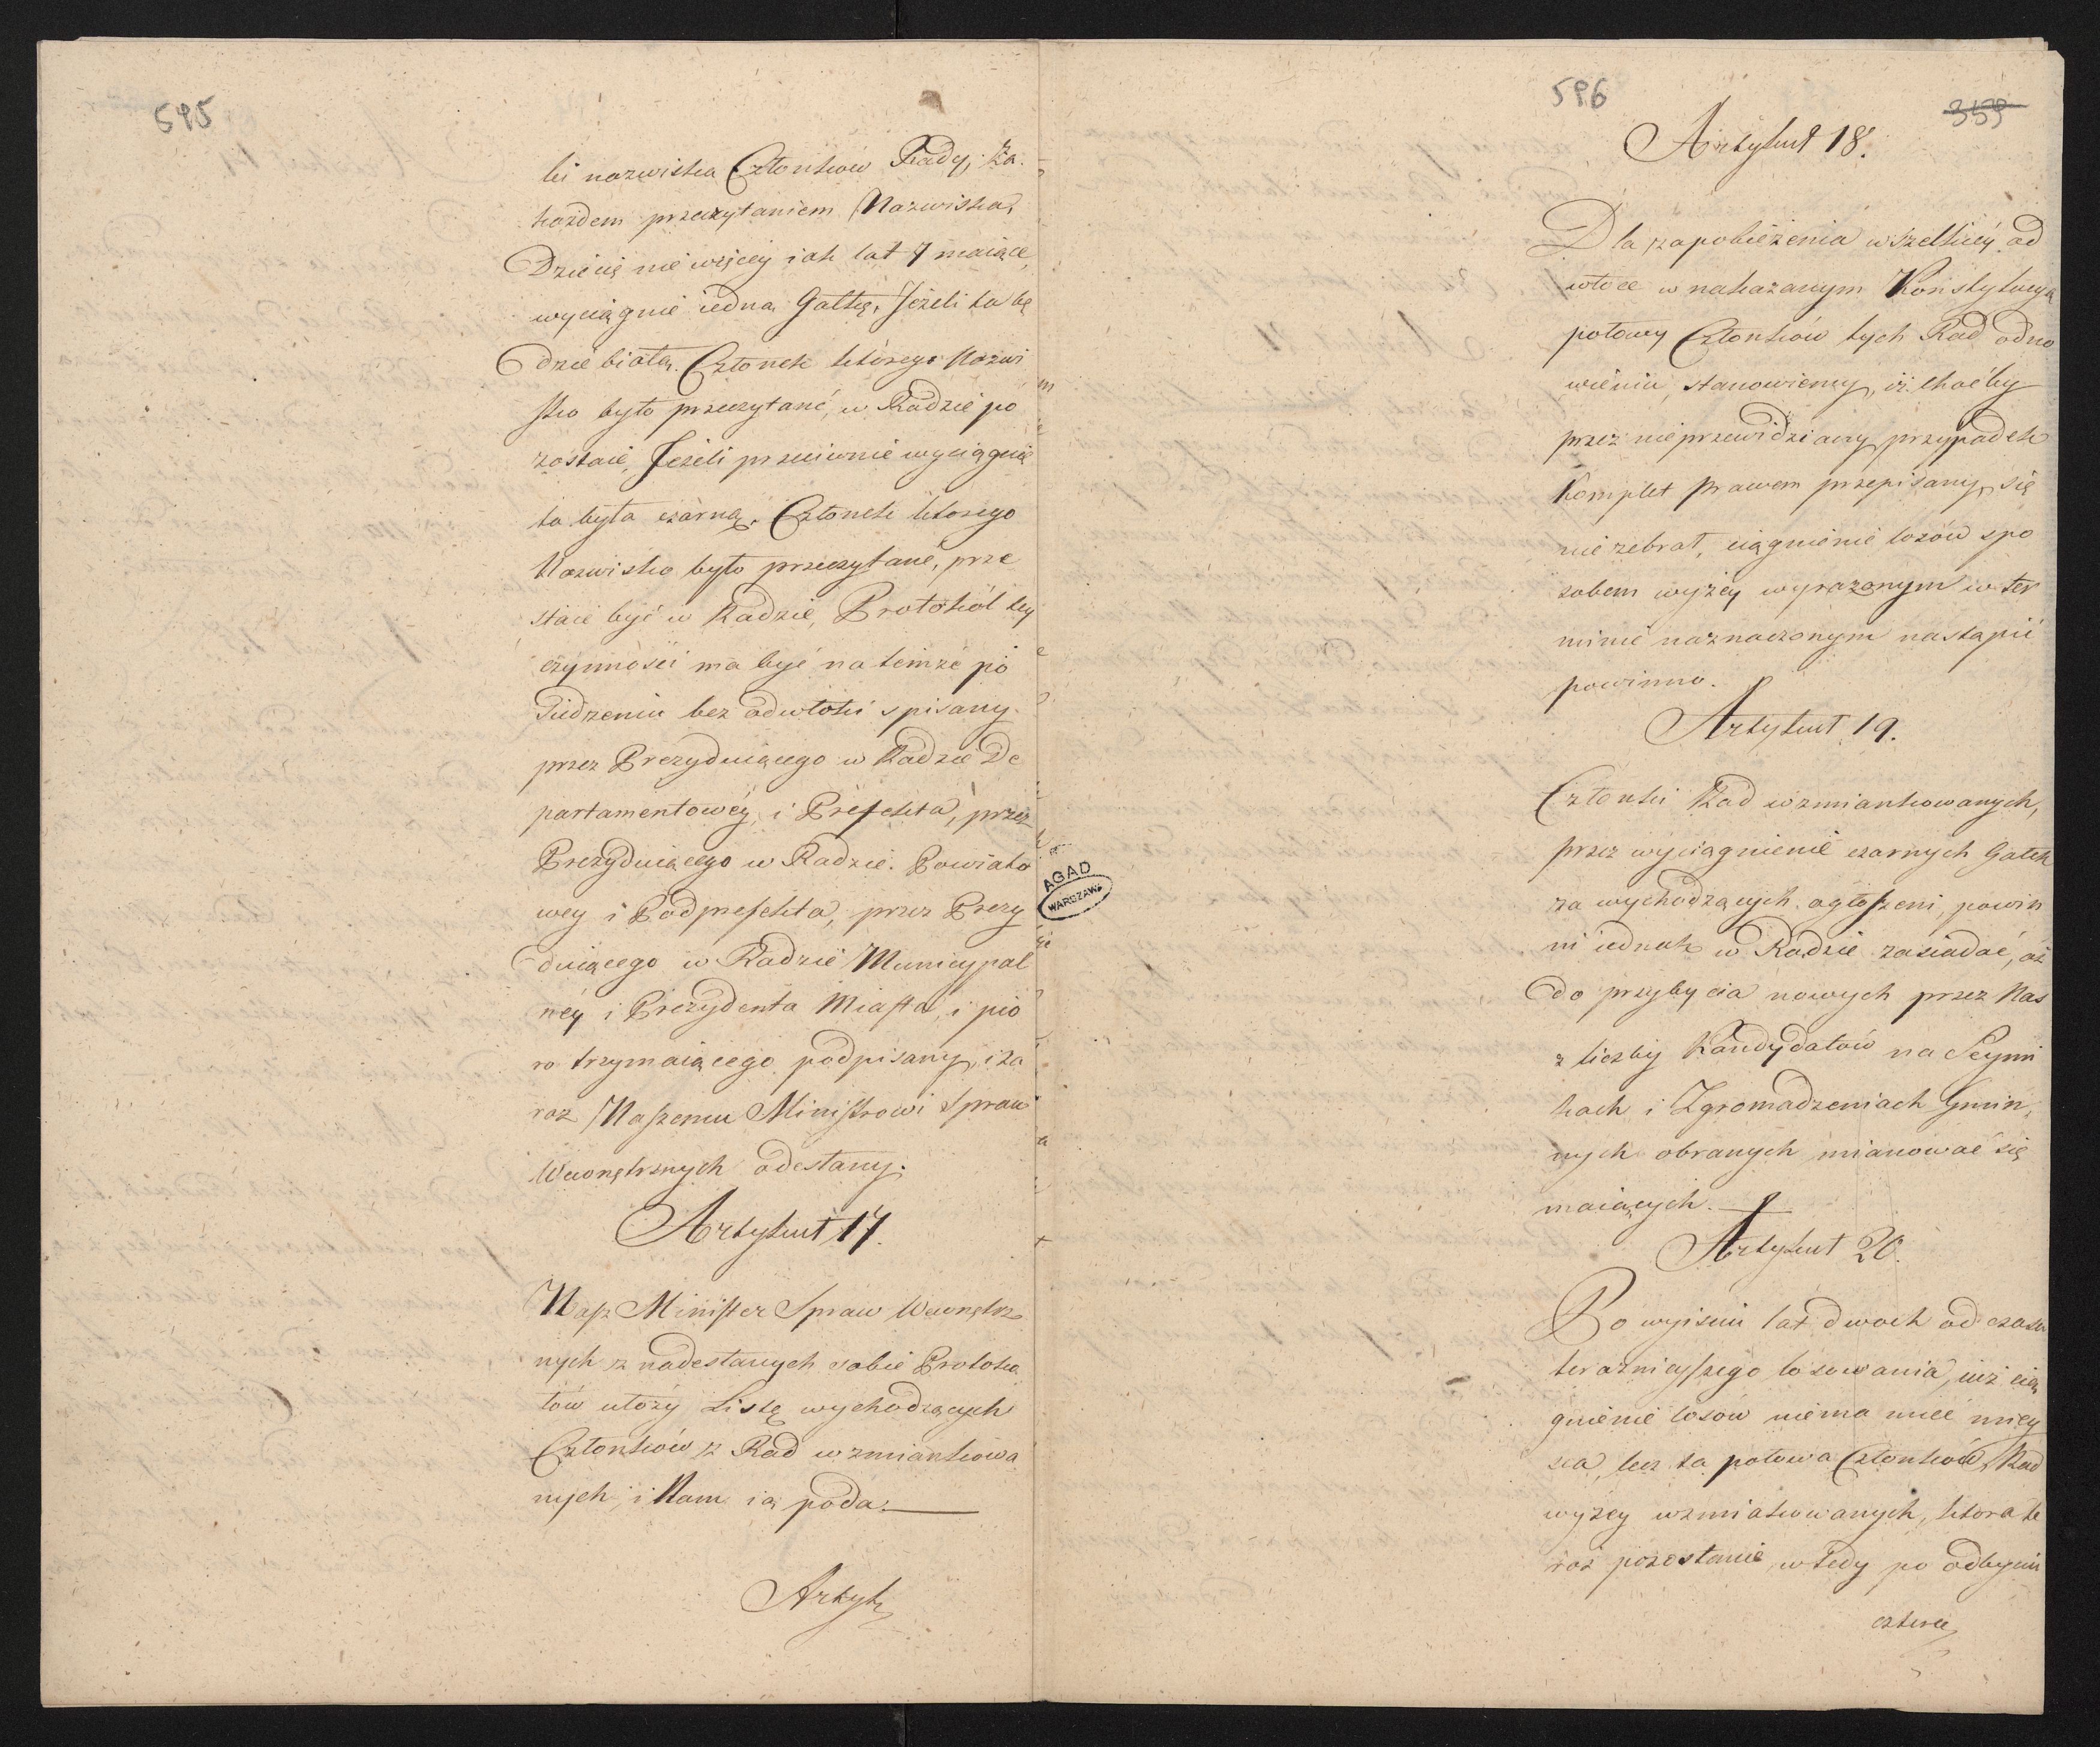 595
ki nazwiska Członków Rady, Za
każdem przeczytaniem Nazwiska,
Dziecię nie więcey iak lat 7 maiące,
wyciągnie iedną Gałkę, Jeżeli ta bę
dzie biała, Członek którego Nazwi
sko było przeczytane, w Radzie po
zostaie, Jeżeli przeciwnie wyciągnię
ta była czarną, Członek którego
Nazwisko było przeczytane, prze
staie być w Radzie, Protokół tey
czynności ma być na temże po
siedzeniu bez odwłoki spisany
przez Prezyduiącego w Radzie De
partamentowéy, i Prefekta, przez
Prezyduiącego w Radzie Powiato
wey i Podprefekta, przez Prezy
duiącego w Radzie Municypal
néy i Prezydenta Miasta, i pió
ro trzymaiącego podpisany, i za
raz Naszemu Ministrowi Spraw
Wewnętrznych odesłany.
Artykuł 17.
Nasz Minister Spraw Wewnętrz
nych z nadesłanych sobie Protoku
łów ułoży Listę wychodzących
Członków z Rad wzmiankowa
nych, i Nam ią poda.
Artyk
596
359
Artykuł 18.
Dla zapobieżenia wszelkiéy od
włoce w nakazanym Konstytucyą
połowy Członków tych Rad odno
wieniu, stanowiemy, iż choćby
przez nieprzewidziany przypadek
Komplet prawem przepisany się
nie zebrał, ciągnienie losów spo
sobem wyżey wyrażonym w ter
minie naznaczonym nastąpić
powinno.
Artykuł 19.
Członki Rad wzmiankowanych,
przez wyciągnienie czarnych Gałek
za wychodzących ogłoszeni, powin
ni iednak w Radzie zasiadać, aż
do przybycia nowych przez Nas
z liczby Kandydatów na Seymi
kach i Zgromadzeniach Gmin
nych obranych mianować się
maiących.
Artykuł 20.
Po wyiściu lat dwóch od czasu
teraźnieyszego losowania, iuż cią
gnienie losów niema mieć miey
sca, lecz ta połowa Członków Rad
wyżey wzmiakowanych, która te
raz pozostanie, wtedy po odbyciu
cztere
AGAD
WARSZAWA